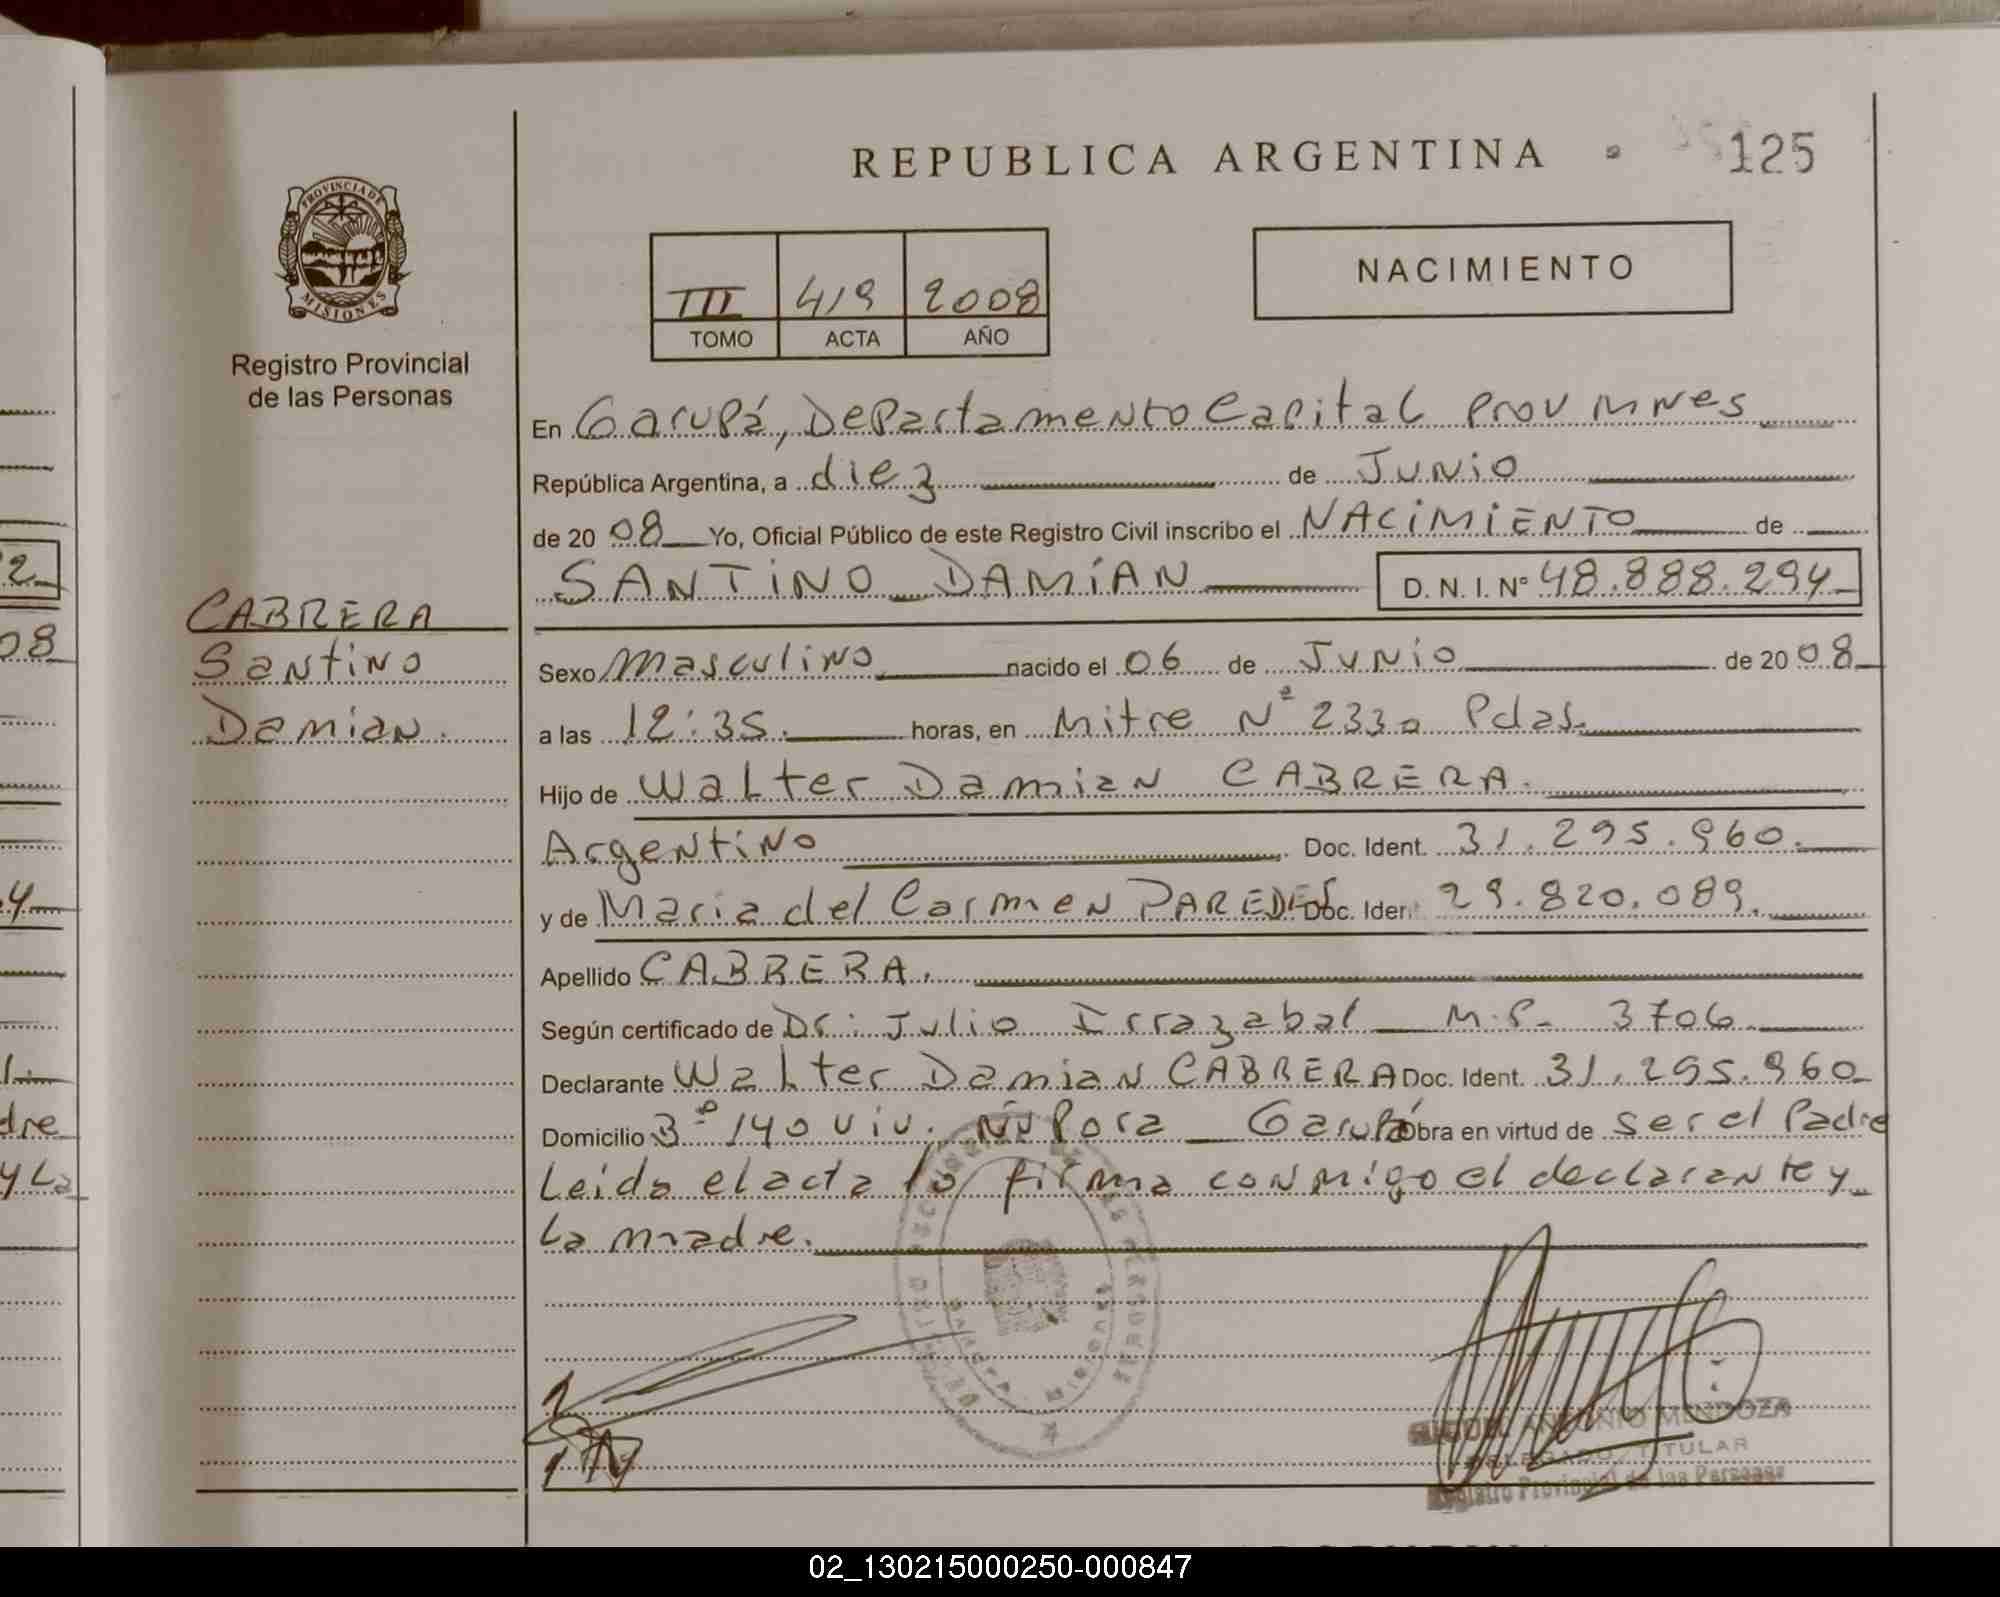 REPUBLICA ARGENTINA
125
PROVINCIA DE MISIONES
Registro Provincial
de las Personas
III 419 2008
TOMO ACTA AÑO
NACIMIENTO
En Garupá, Departamento Capital Prov
República Argentina, a diez de Junio
de 2008 Yo, Oficial Público de este Registro Civil inscribo el NACIMIENTO de
SANTINO DAMIAN D. N. I. Nº 48.888.294
CABRERA
Santino
Damian.
Sexo Masculino nacido el 06 de Junio de 2008
a las 12:35. horas, en Mitre Nº 2330 Pdas.
Hijo de Walter Damian CABRERA.
Argentino Doc. Ident. 31.295.960.
y de Maria del Carmen PAREDES Doc. Iden 29.820.089.
Apellido CABRERA.
Según certificado de Dr: Julio Irrazabal M.P. 3706
Declarante Walter Damian CABRERA Doc. Ident. 31.295.960
Domicilio 140 viv. Ñu Pora Garupá Obra en virtud de ser el Padre
Leida el acta la firma conmigo el declarante y
La madre.
ANTONIO MENDOZA
DELEGADO TITULAR
Registro Provincial de las Personas
2
08
4
dre
y La
02_130215000250-000847